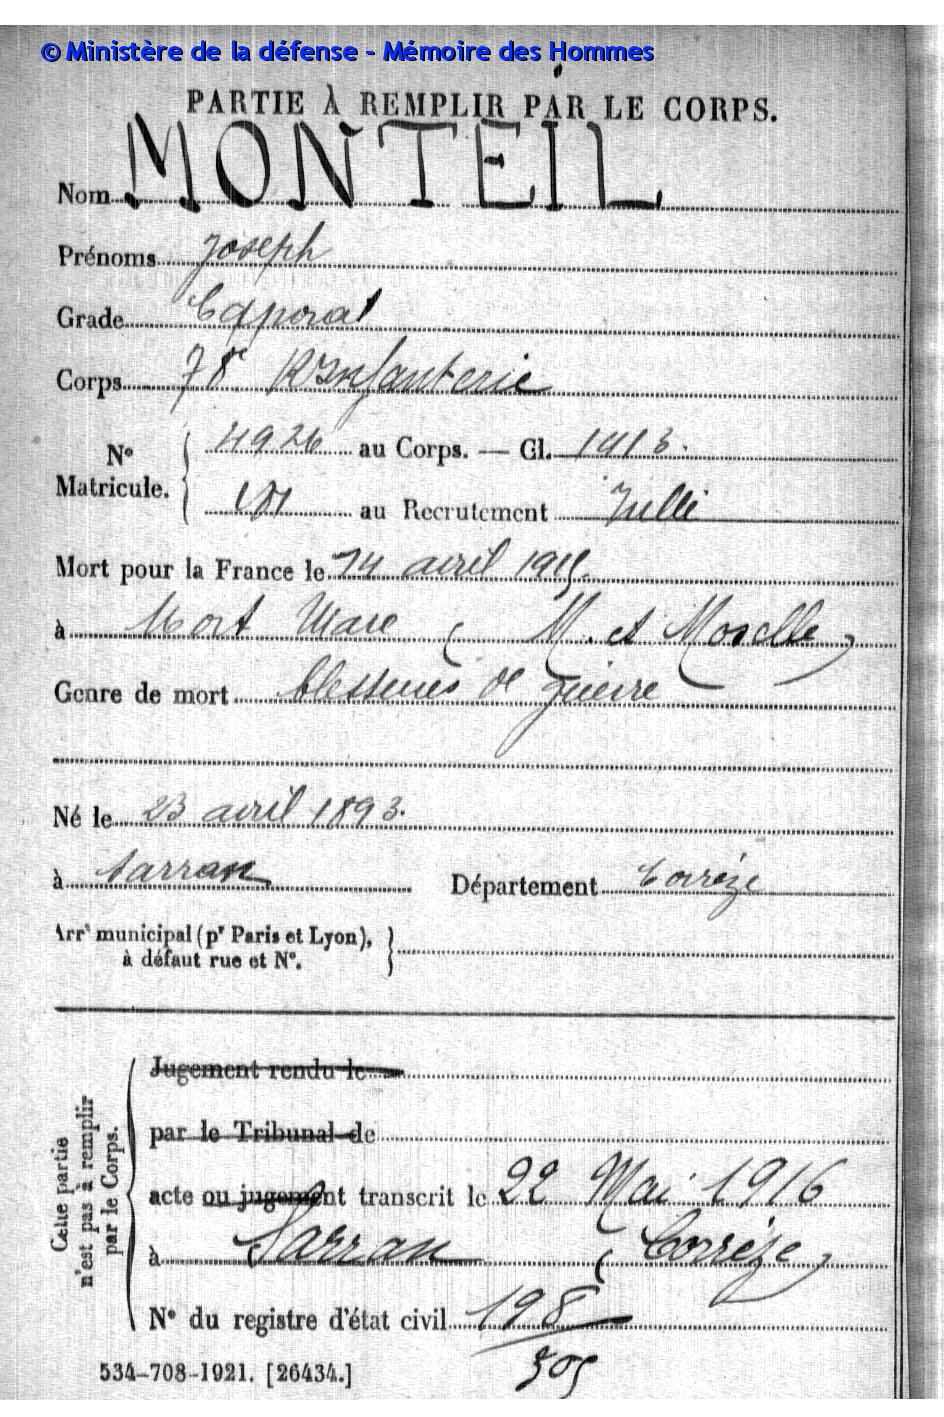 © Ministère de la défense - Mémoire des Hommes
PARTIE À REMPLIR PAR LE CORPS.
Nom MONTEIL
Prénoms Joseph
Grade Caporal
Corps 78e R Infanterie
No Matricule. { 4926 au Corps. — Cl. 1913.
au Recrutement Tulle
Mort pour la France le 14 avril 1915.
à Mort Mare (M. et Moselle)
Genre de mort blessures de guerre
Né le 23 avril 1893.
à Sarran Département Corrèze
Arrt municipal (pr Paris et Lyon),
à défaut rue et No.
Cette partie
n'est pas à remplir
par le Corps.
Jugement rendu le
par le Tribunal de
acte ou jugement transcrit le 22 Mai 1916
à Sarran (Corrèze)
No du registre d'état civil 198
505
534-708-1921. [26434.]